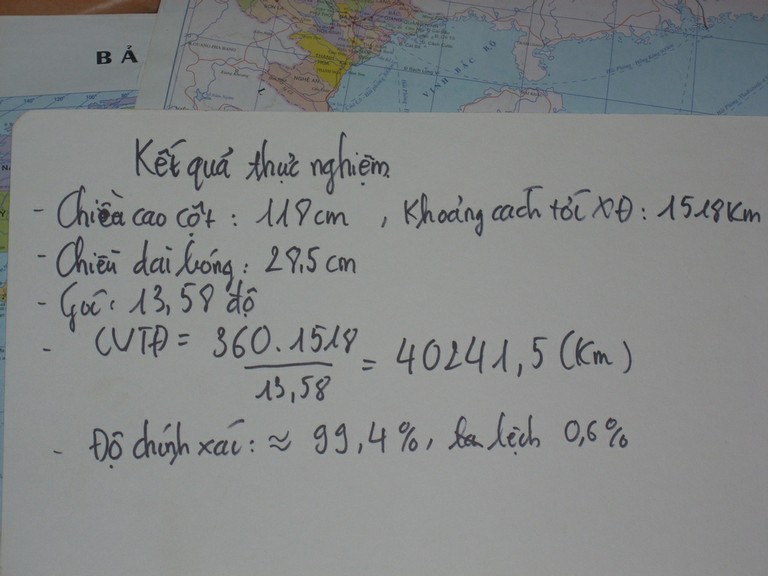 BẢ
VỊNH BẮC BỘ
Kết quả thực nghiệm
- Chiều cao cột : 118 cm , Khoảng cách tới XĐ : 1518 Km
- Chiều dài bóng : 28,5 cm
- Góc : 13,58 độ
- CVTĐ = 360.1518 / 13,58 = 40241,5 (Km)
- Độ chính xác : ≈ 99,4%, lệch 0,6%